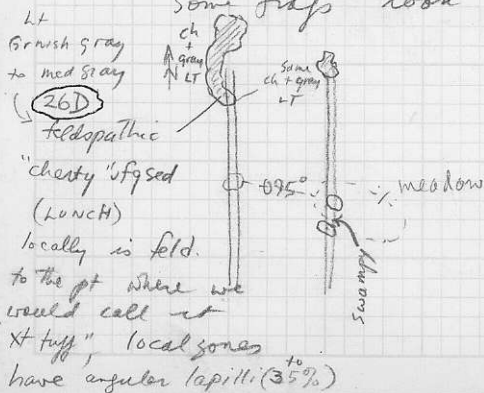 Some frags look
Lt
Grnish gray
to med gray
26D
feldspathic
"cherty" vfg sed
(LUNCH)
locally is feld.
to the pt where we
would call it
"xt tuff", local zones
have angular lapilli (35%)
to
ch
+
gray
LT
N
Some
ch + gray
LT
095°
meadow
swampy